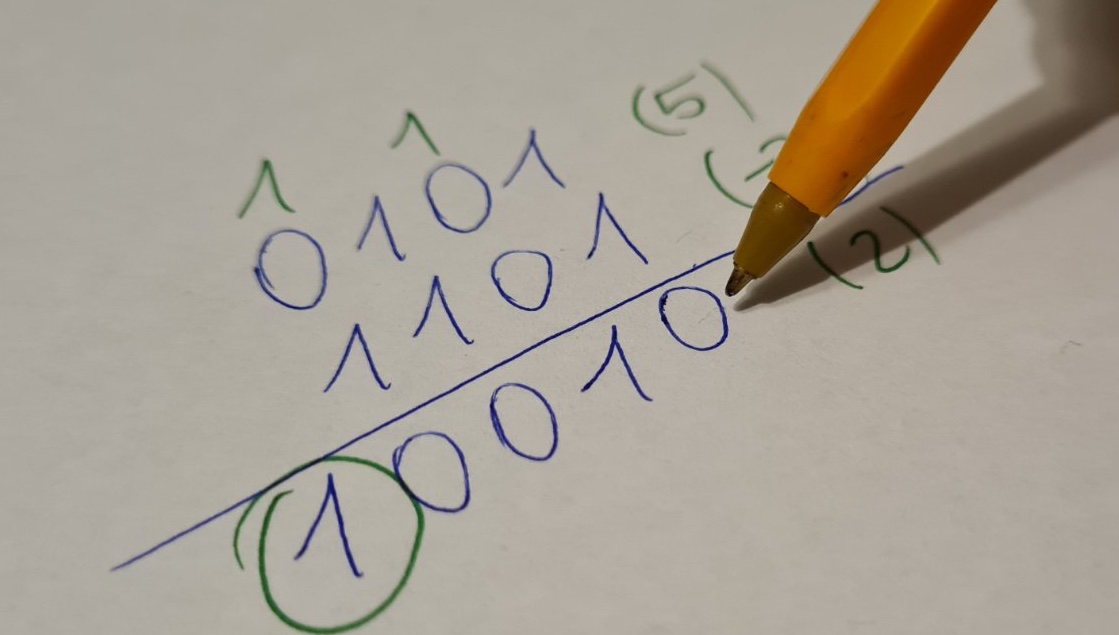 1 1
0101 (5)
1101
10010 (2)